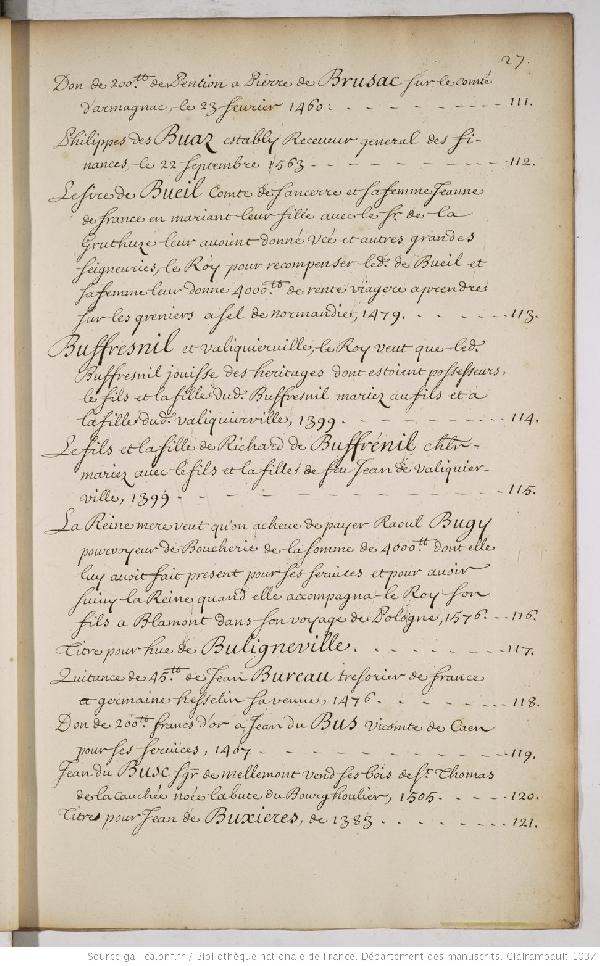 27.
Don de 200.tt de Pention a Pierre de Brusac sur le comté
d'armagnac, le 23 fevrier 1460: - - - - - - - - 111.
Philippes des Buaz establÿ Receveur general des fi-
nances, le 22 septembre 1563 - - - - - - - - - 112.
Le sire de Bueil Comte de sancerre et sa femme Jeanne
de france en mariant leur fille avec le sr. de la
Gruthuze leur avoint donné Vée et autres grandes
seigneuries, le Roÿ pour recompenser led. de Bueil et
sa femme leur donne 4000.tt de rente viagere a prendre
sur les greniers a sel de normandie, 1479. - - - - - 113.
Buffresnil et valiquierville, le Roy veut que led.
Buffresnil jouisse des heritages dont estoient possesseurs,
le fils et la fille dud. Buffresnil mariez au fils et a
la fille dud. valiquierville, 1399. - - - - - - - 114.
Le fils et la fille de Richard de Buffrenil chlr-
mariez avec le fils et la fille de feu Jean de Valiquier-
ville, 1399 - - - - - - - - - - - - 115.
La Reine mere veut qu'on acheve de payer Raoul Bugy
pourvoyeur de Boucherie de la somme de 4000tt dont elle
luy avoit fait present pour ses services et pour avoir
suivy la Reine quand elle accompagna le Roy son
fils a Blamont dans son voyage de Pologne, 1576. - - 116.
Titre pour hue de Buligneville. - - - - - - - 117.
Quitance de 45.tt de Jean Bureau tresorier de france
a germaine hesselin sa veuve, 1476 - - - - - - 118.
Don de 200tt francs d'or a Jean du Bus vicomte de Caen
pour ses services, 1407 - - - - - - - - - - 119.
Jean du Busc sgr. de mellemont vend ses bois de St. Thomas
de la Cauchée noée la bute du Bourghoulier, 1505. - - - 120.
Titres pour Jean de Buxieres, de 1383 - - - - - - 121.
Source gallica.bnf.fr / Bibliothèque nationale de France. Département des manuscrits. Clairambault 1037